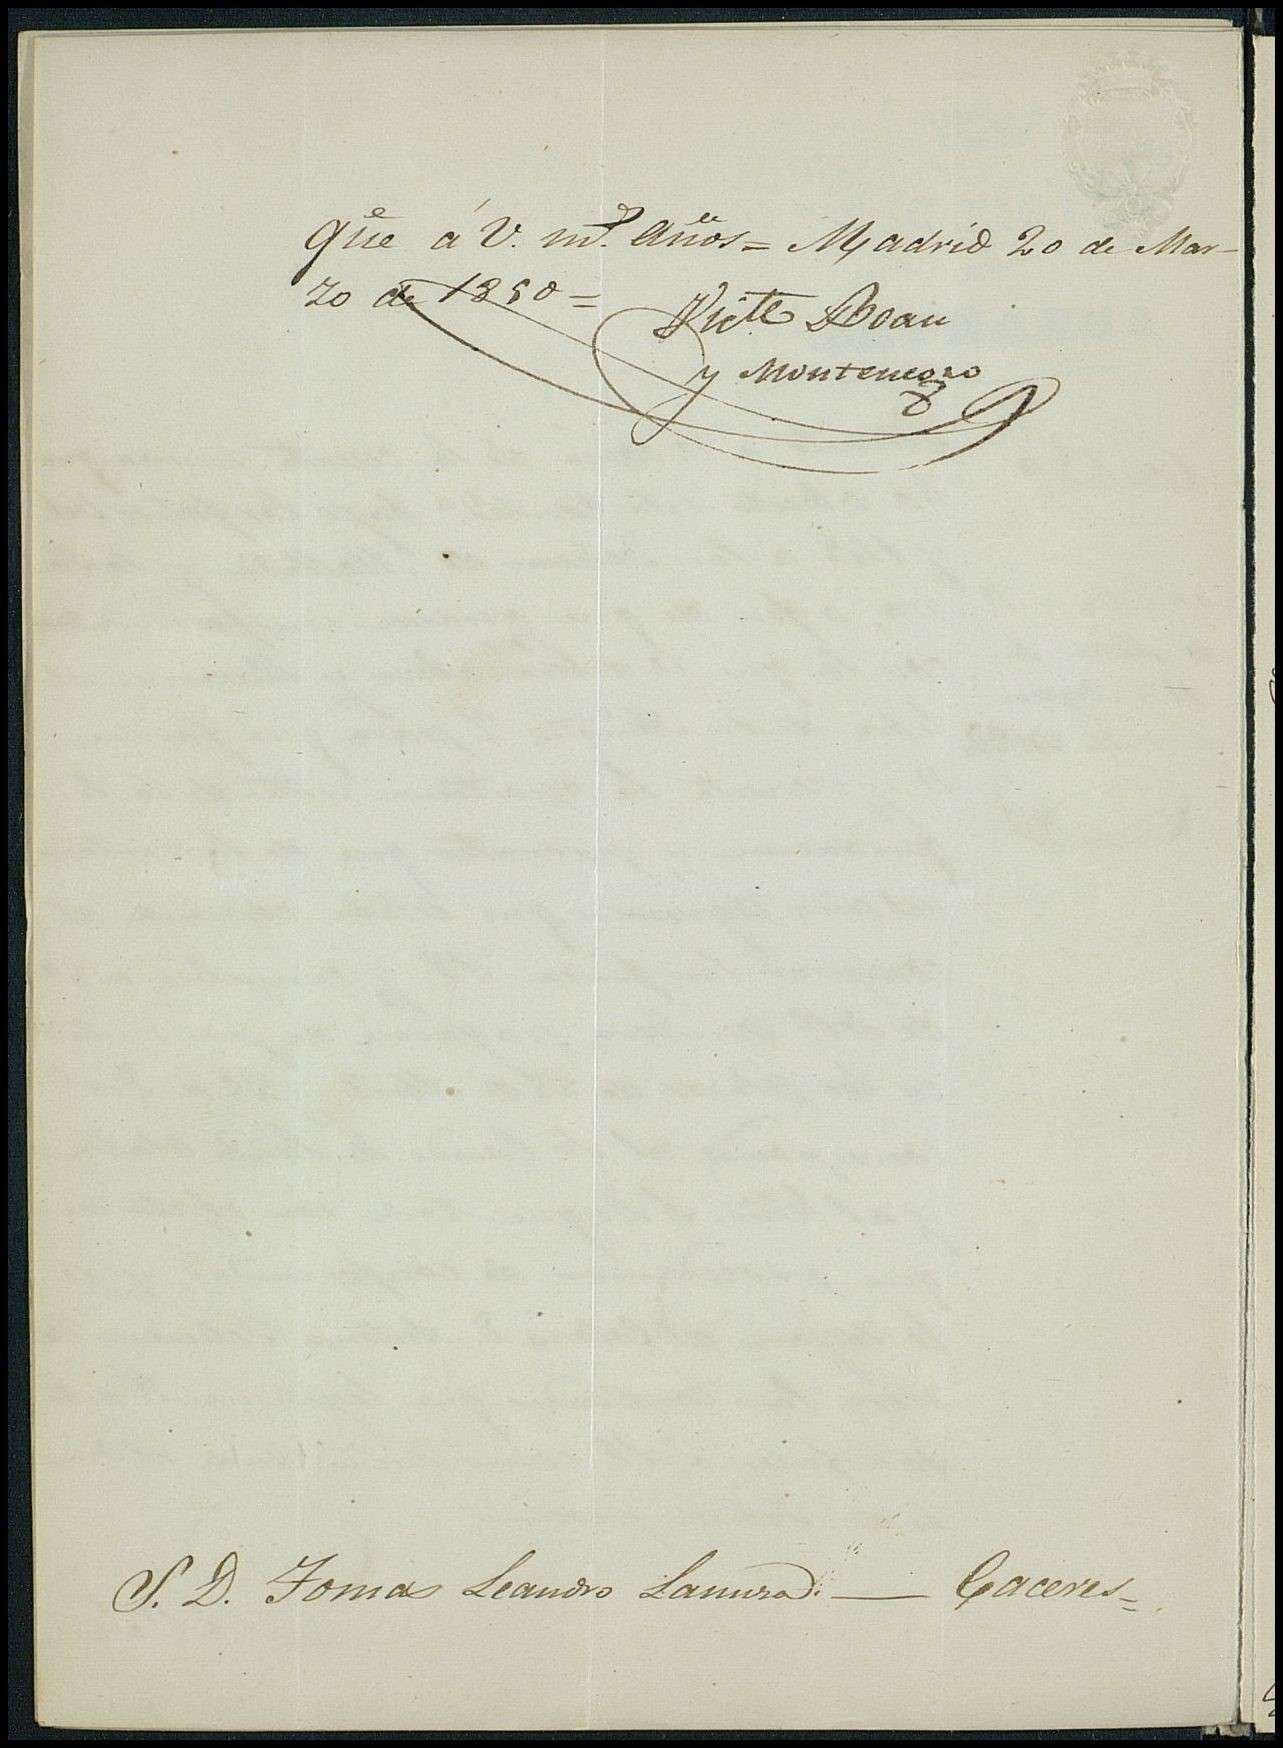 gūe á V. mˢ. años = Madrid 20 de Mar-
zo de 1860 =
Victe Boan
y Montenegro
S. D. Tomas Leandro ——— Caceres =